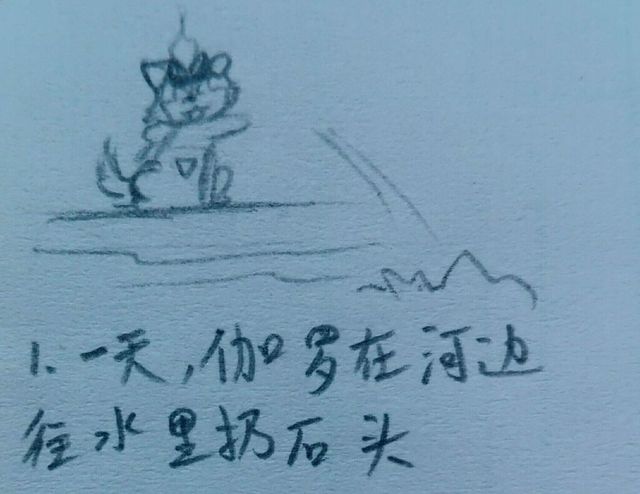 1. 一天,伽罗在河边
往水里扔石头